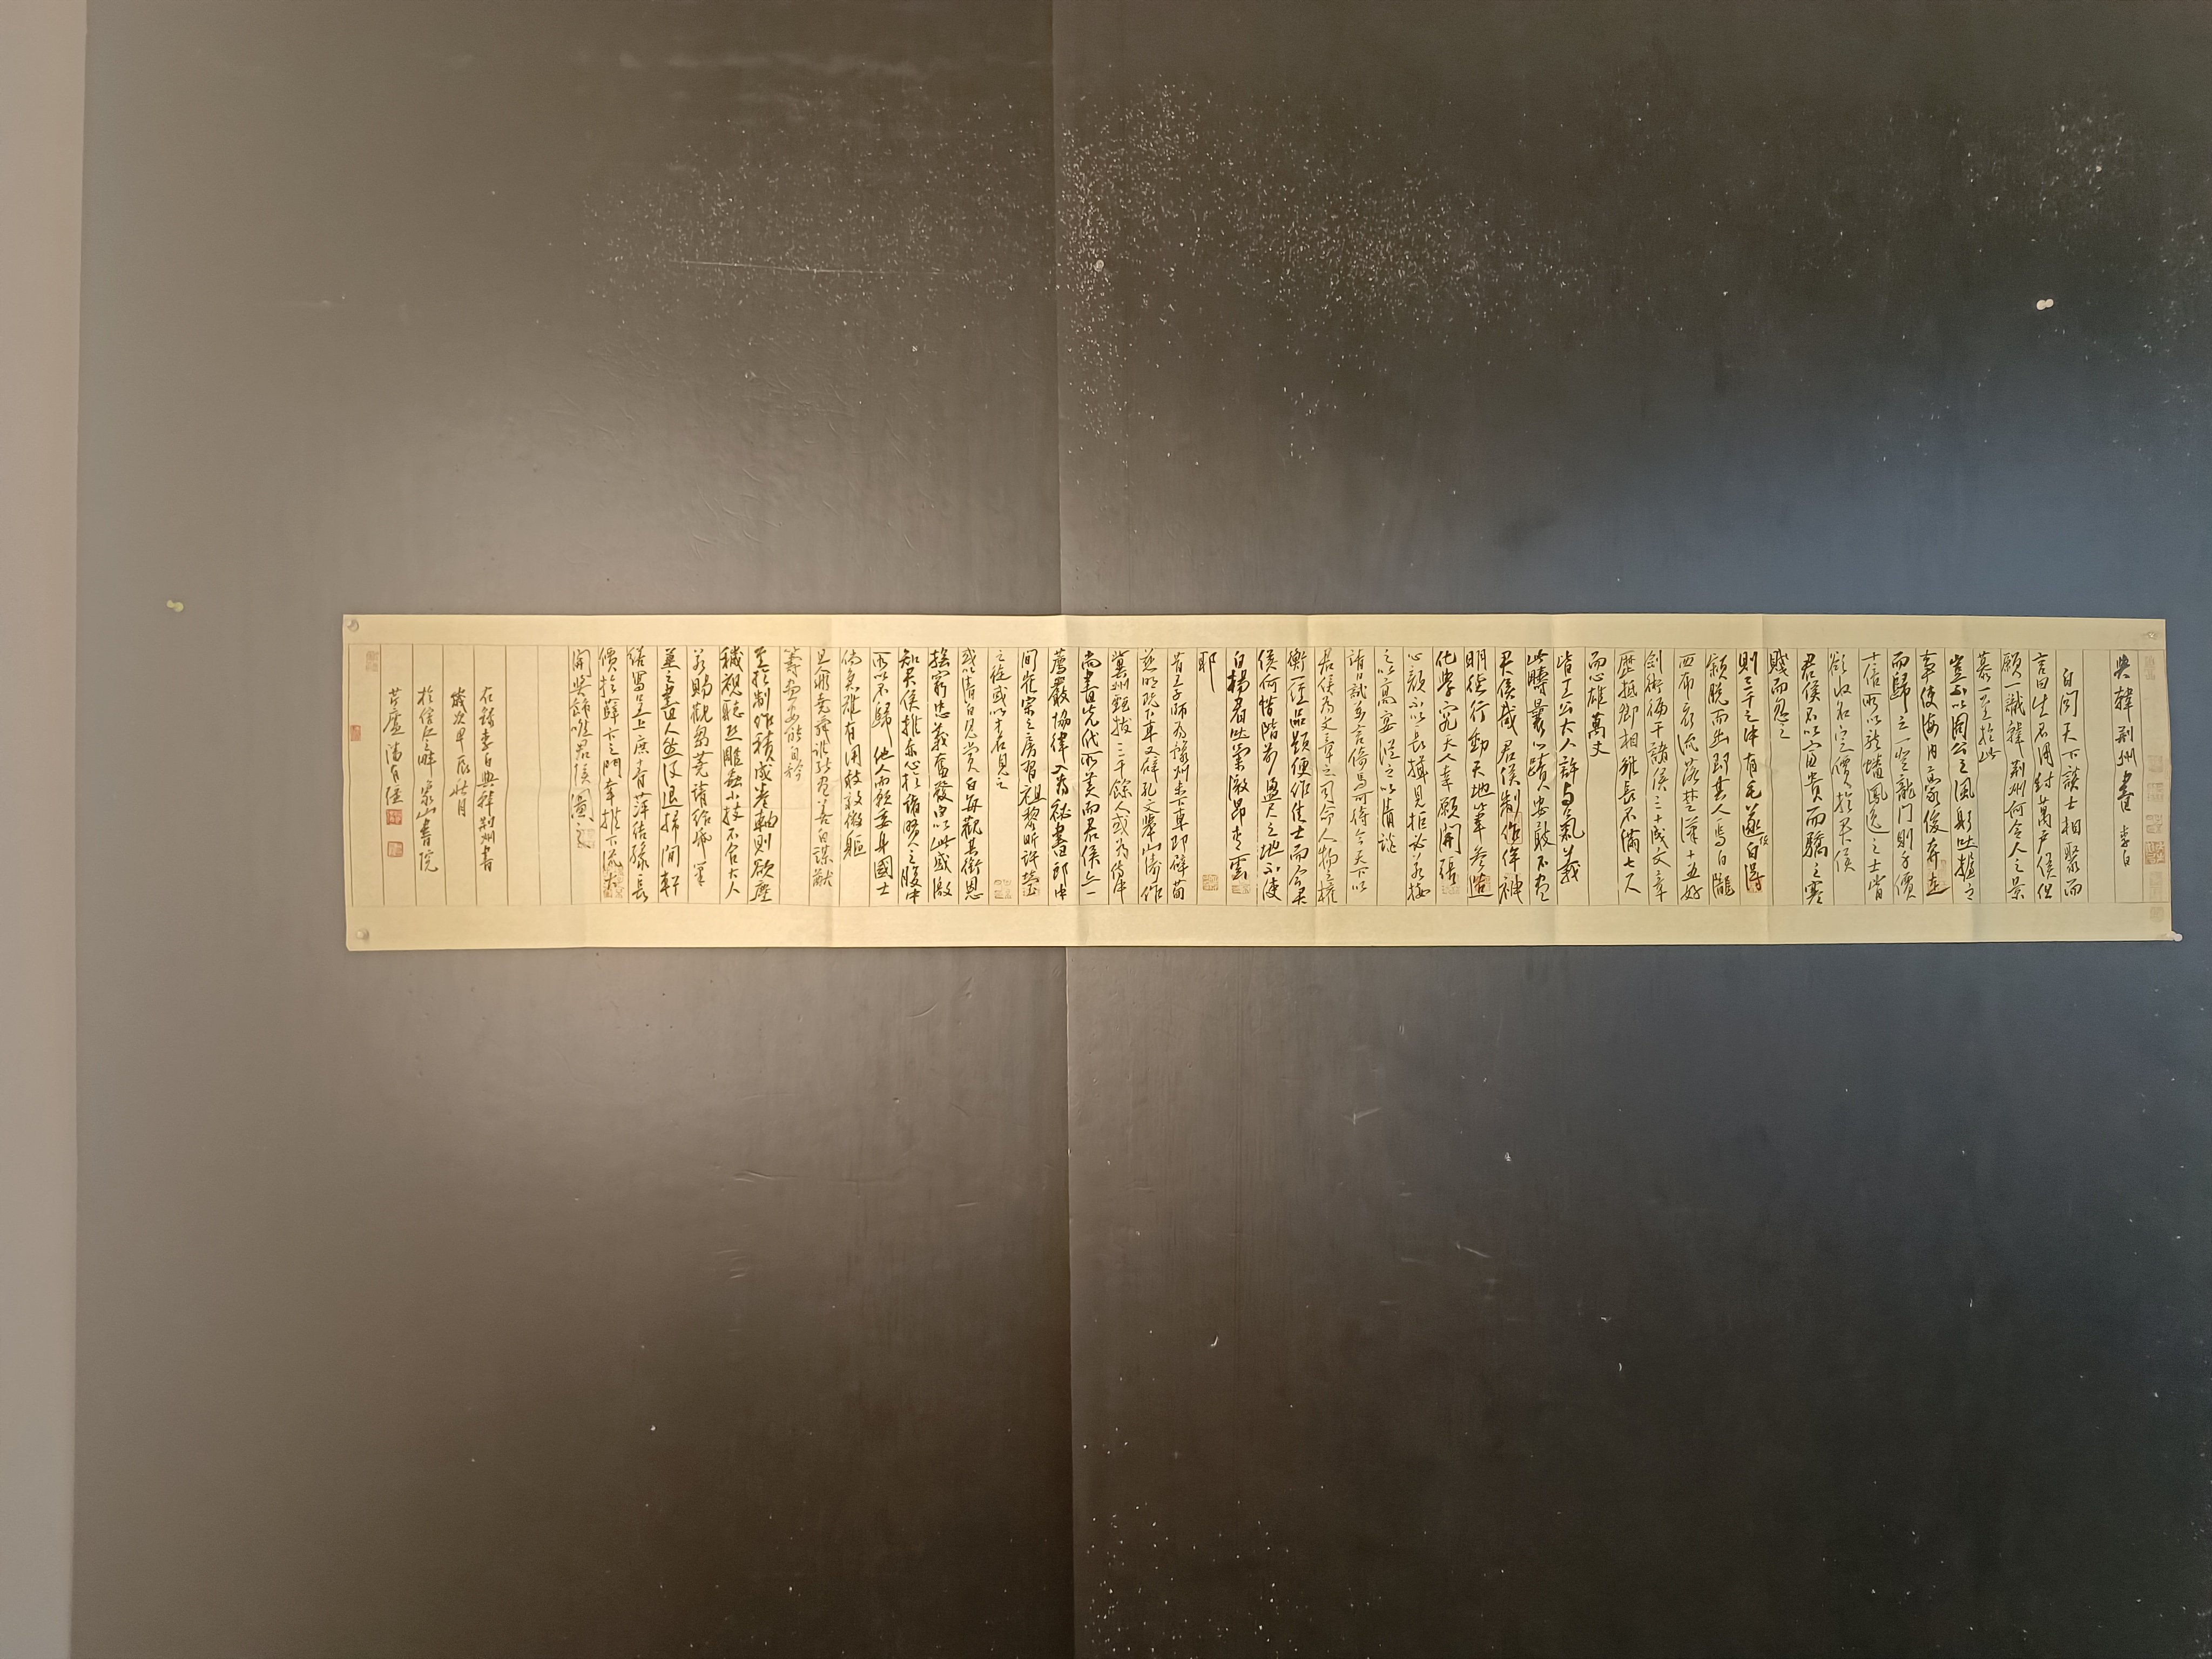 與韓荊州書 李白
白聞天下談士相聚而
言曰生不用封萬戶侯但
願一識韓荊州何令人之景
慕一至於此
豈不以周公之風躬吐握之
事使海內豪俊奔走
而歸之一登龍门則聲價
十倍所以龍蟠鳳逸之士皆
欲收名定價於君侯
君侯不以富貴而驕之寒
賤而忽之
則三千之中有毛遂使白得
穎脫而出即其人焉白隴
西布衣流落楚漢十五好
劍術徧干諸侯三十成文章
歷抵卿相雖長不滿七尺
而心雄萬丈
皆王公大人許與氣義
此疇曩心蹟安敢不盡
君侯哉君侯制作侔神
明德行動天地筆參造
化學究天人幸願開張
心顏不以長揖見拒必若接
之以高宴縱之以清談
請日試萬言倚馬可待今天下以
君侯為文章之司命人物之權
衡一經品題便作佳士而今君
侯何惜階前盈尺之地不使
白揚眉吐氣激昂青雲
耶
昔王子師為豫州未下車即辟荀
慈明既下車又辟孔文舉山濤作
冀州甄拔三十餘人或為侍中
尚書先代所美而君侯亦一
薦嚴協律入為祕書郎中
間崔宗之房習祖黎昕許瑩
之徒或以才名見
或以清白見賞白每觀其銜恩
撫躬忠義奮發白以此感激
知君侯推赤心於諸賢之腹中
所以不歸他人而願委身國士
倘急難有用敢效微軀
且人非堯舜誰能盡善白謨猷
籌畫安能自矜
至於制作積成卷軸則欲塵
穢視聽恐雕蟲小技不合大人
若賜觀芻蕘請給紙筆
兼之書人然後退掃閒軒
繕寫呈上庶青萍結綠長
價於薛卞之門幸推下流大
開獎飾唯君侯圖之
右錄李白與韓荊州書
歲次甲辰
於 象山書院